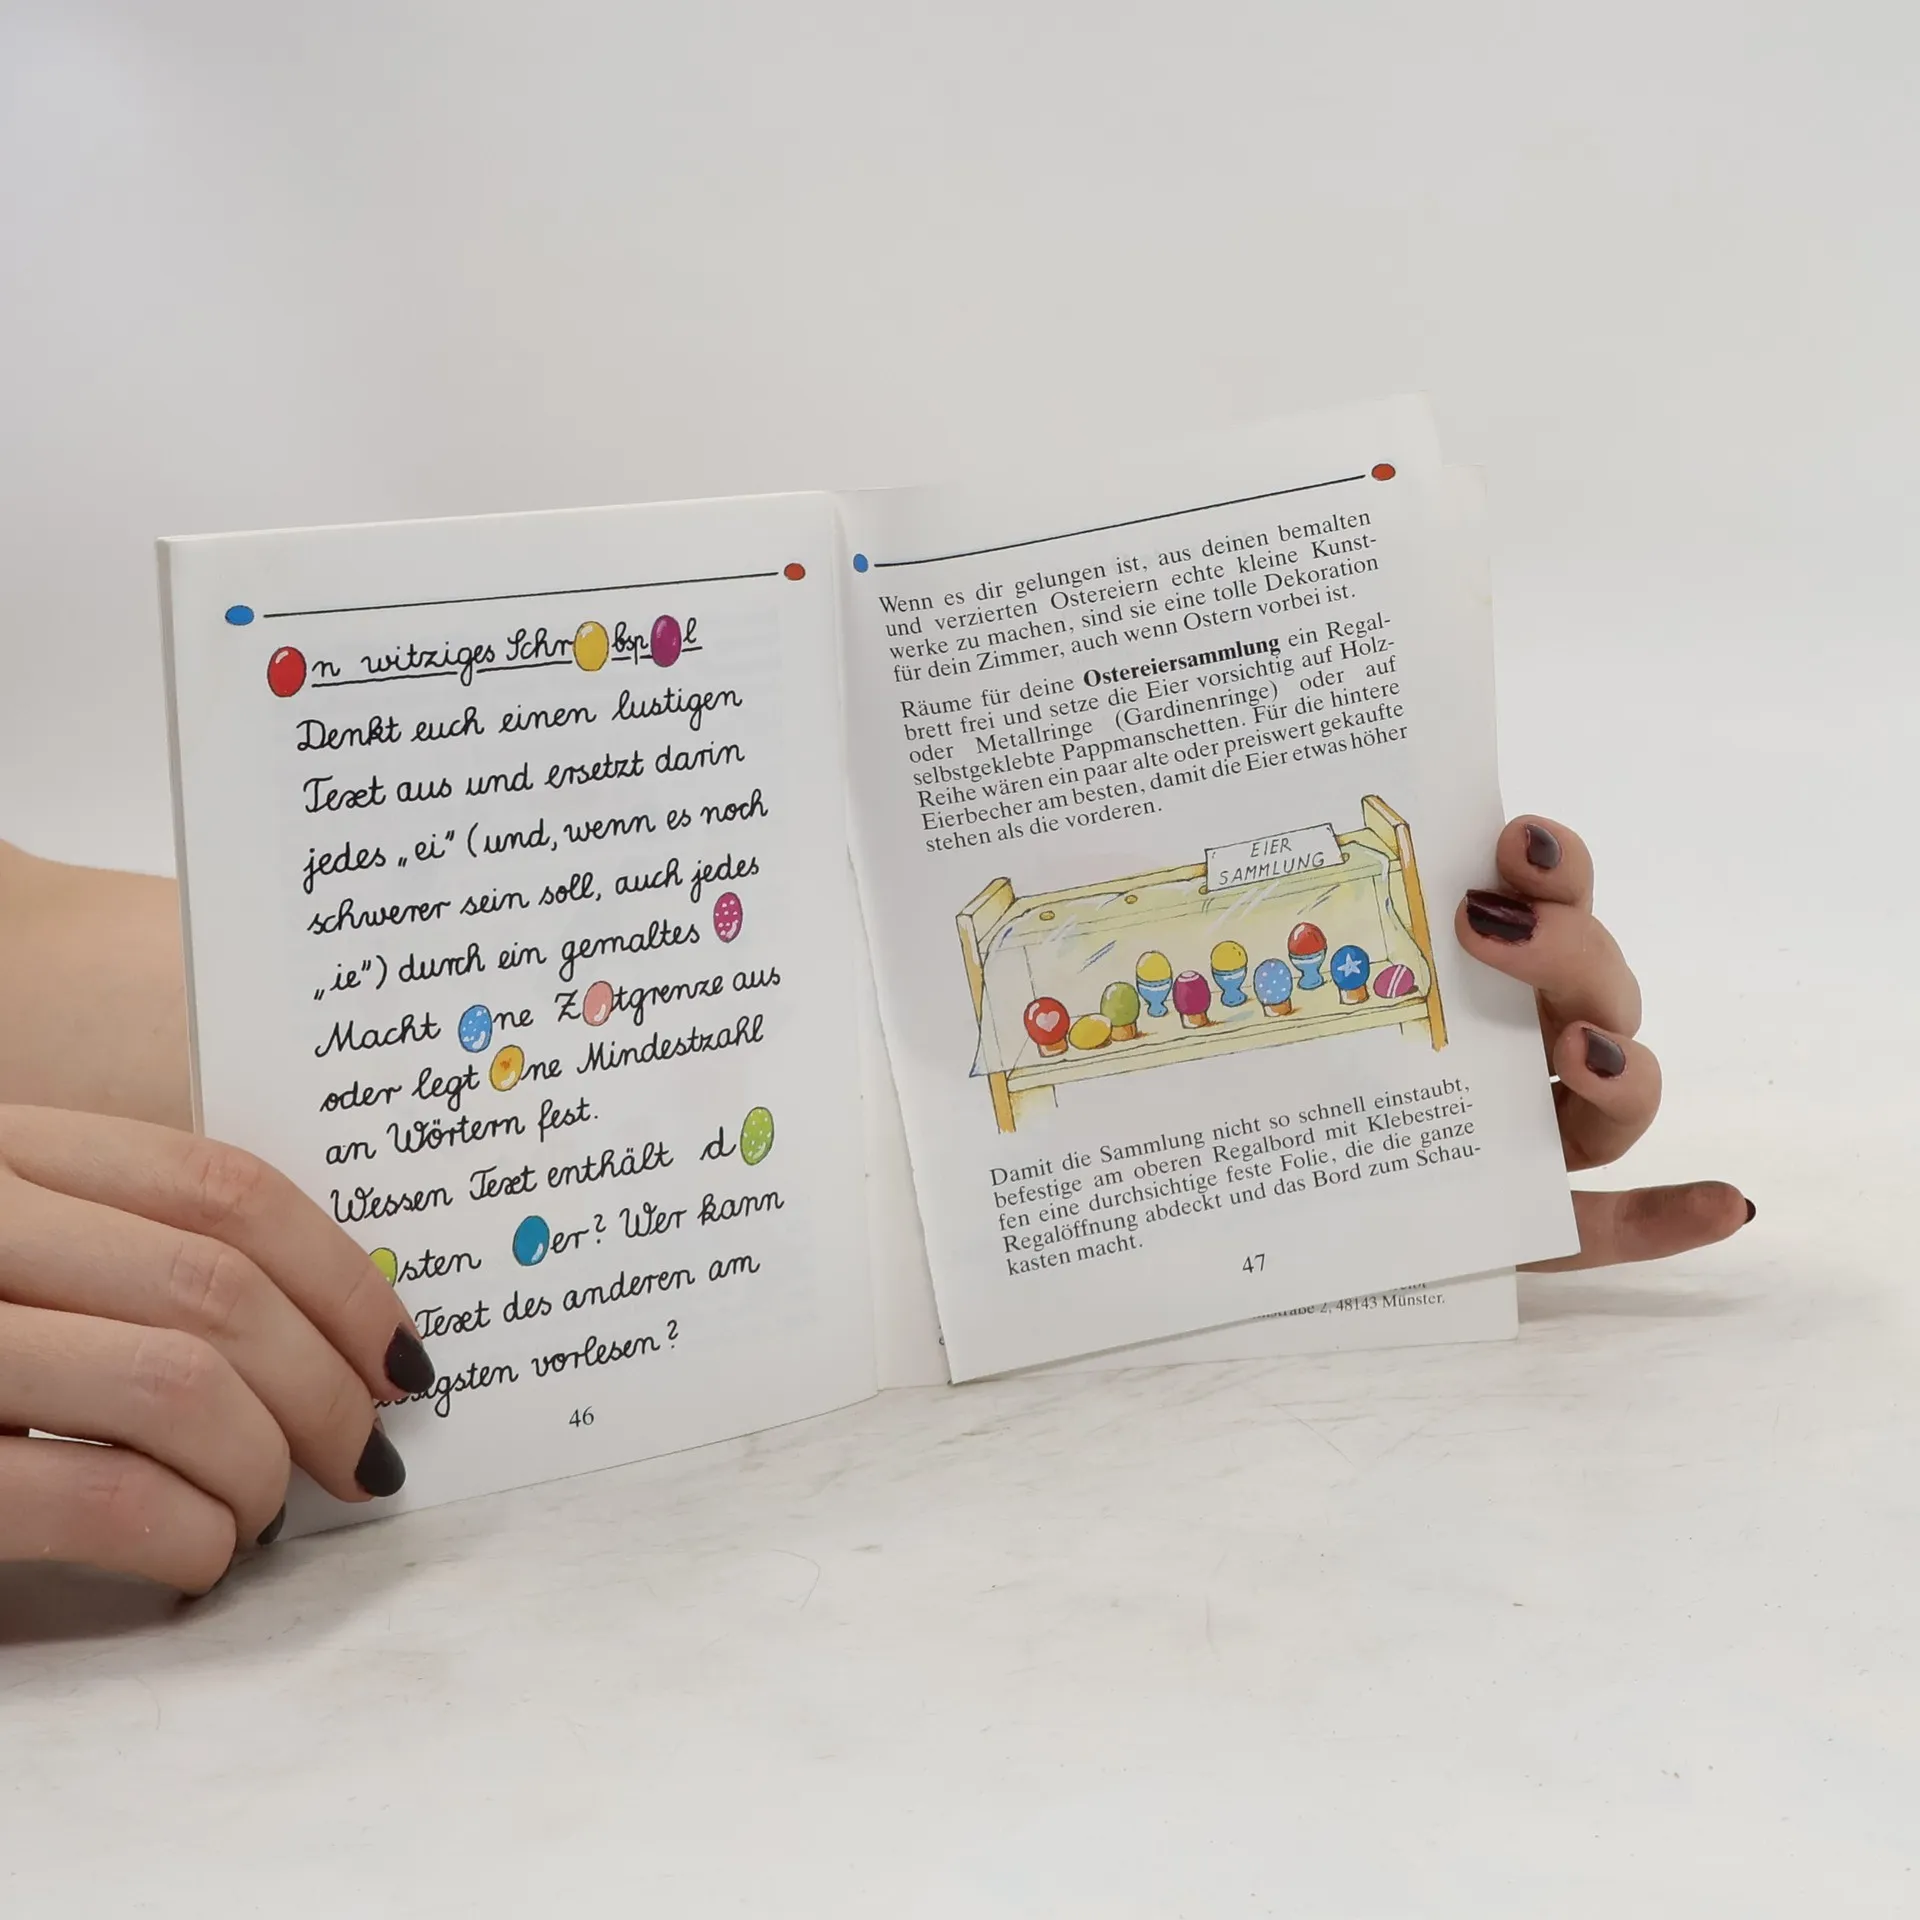 n witziges Schr bsp l
Denkt euch einen lustigen
Text aus und ersetzt darin
jedes „ei" (und, wenn es noch
schwerer sein soll, auch jedes
„ie") durch ein gemaltes
Macht ne Z tgrenze aus
oder legt ne Mindestzahl
an Wörtern fest.
Wessen Text enthält d
sten er? Wer kann
Text des anderen am
vorlesen?
46
Wenn es dir gelungen ist, aus deinen bemalten
und verzierten Ostereiern echte kleine Kunst-
werke zu machen, sind sie eine tolle Dekoration
für dein Zimmer, auch wenn Ostern vorbei ist.
Räume für deine Ostereiersammlung ein Regal-
brett frei und setze die Eier vorsichtig auf Holz-
oder Metallringe (Gardinenringe) oder auf
selbstgeklebte Pappmanschetten. Für die hintere
Reihe wären ein paar alte oder preiswert gekaufte
Eierbecher am besten, damit die Eier etwas höher
stehen als die vorderen.
EIER
SAMMLUNG
Damit die Sammlung nicht so schnell einstaubt,
befestige am oberen Regalbord mit Klebestrei-
fen eine durchsichtige feste Folie, die die ganze
Regalöffnung abdeckt und das Bord zum Schau-
kasten macht.
47
2, 48143 Münster.